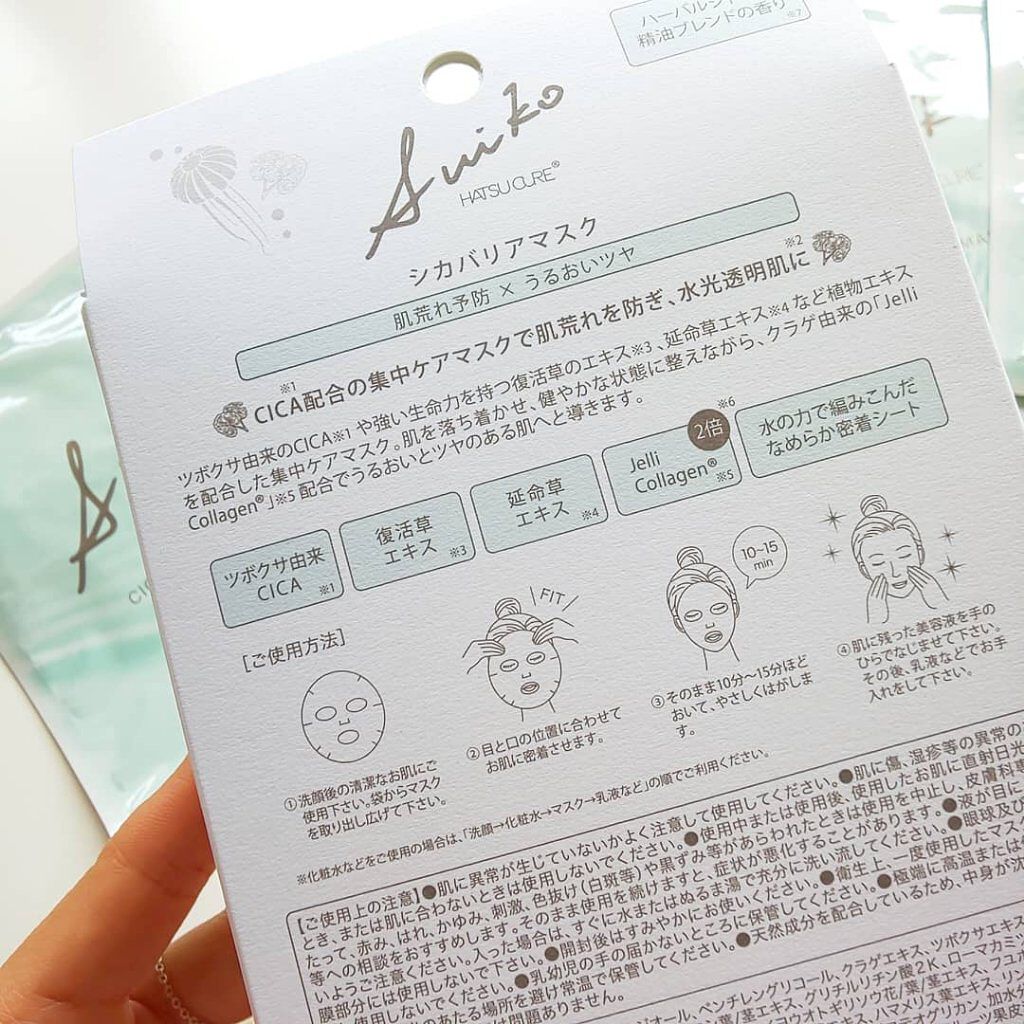 精油ブレンドの香り※7
Suiko
HATSUCURE®
シカバリアマスク
肌荒れ予防 × うるおいツヤ
CICA※1配合の集中ケアマスクで肌荒れを防ぎ、水光透明肌に※2
ツボクサ由来のCICA※1 や強い生命力を持つ復活草のエキス※3、延命草エキス※4 など植物エキス
を配合した集中ケアマスク。肌を落ち着かせ、健やかな状態に整えながら、クラゲ由来の「Jelli
Collagen®」※5 配合でうるおいとツヤのある肌へと導きます。
ツボクサ由来
CICA ※1
復活草
エキス ※3
延命草
エキス ※4
2倍 ※6
Jelli
Collagen® ※5
水の力で編みこんだ
なめらか密着シート
[ご使用方法]
FIT
10-15
min
①洗顔後の清潔なお肌にご
使用下さい。袋からマスク
を取り出し広げて下さい。
②目と口の位置に合わせて
お肌に密着させます。
③そのまま10分〜15分ほど
おいて、やさしくはがしま
す。
④肌に残った美容液を手の
ひらでなじませて下さい。
その後、乳液などでお手
入れをして下さい。
※化粧水などをご使用の場合は、「洗顔→化粧水→マスク→乳液など」の順でご利用ください。
【ご使用上の注意】●肌に異常が生じていないかよく注意して使用してください。●肌に傷、湿疹等の異常の
とき、または肌に合わないときは使用しないでください。●使用中または使用後、使用したお肌に直射日光
たって、赤み、はれ、かゆみ、刺激、色抜け(白斑等)や黒ずみ等があらわれたときは使用を中止し、皮膚科専
等への相談をおすすめします。そのまま使用を続けますと、症状が悪化することがあります。●液が目に
いようご注意ください。入った場合は、すぐに水またはぬるま湯で充分に洗い流してください。●眼球及び
膜部分には使用しないで下さい。●開封後はすみやかにお使いください。●衛生上、一度使用したマス
使用しないでください。●乳幼児の手の届かないところに保管してください。●極端に高温または
のあたる場所を避け常温で保管してください。●天然成分を配合しているため、中身が沈
は問題ありません。
ジオール、ペンチレングリコール、クラゲエキス、ツボクサエキス
葉/茎エキス、グリチルリチン酸2K、ローマカミツ
ヨウオトギリソウ花/葉/茎エキス、フユボ
エキス、ハマメリス葉エキス